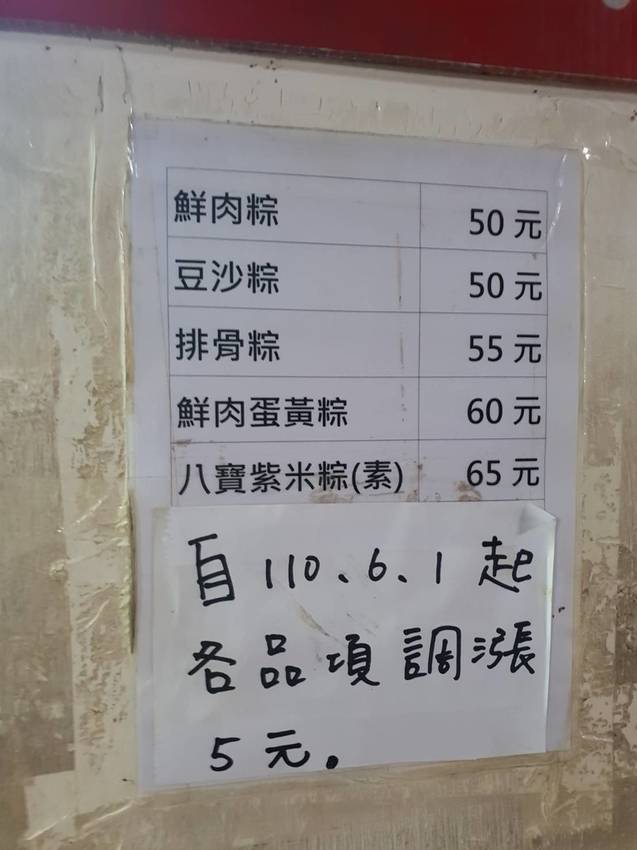 鮮肉粽 50 元
豆沙粽 50 元
排骨粽 55 元
鮮肉蛋黃粽 60 元
八寶紫米粽(素) 65 元
自 110、6、1 起
各品項調漲
5 元。